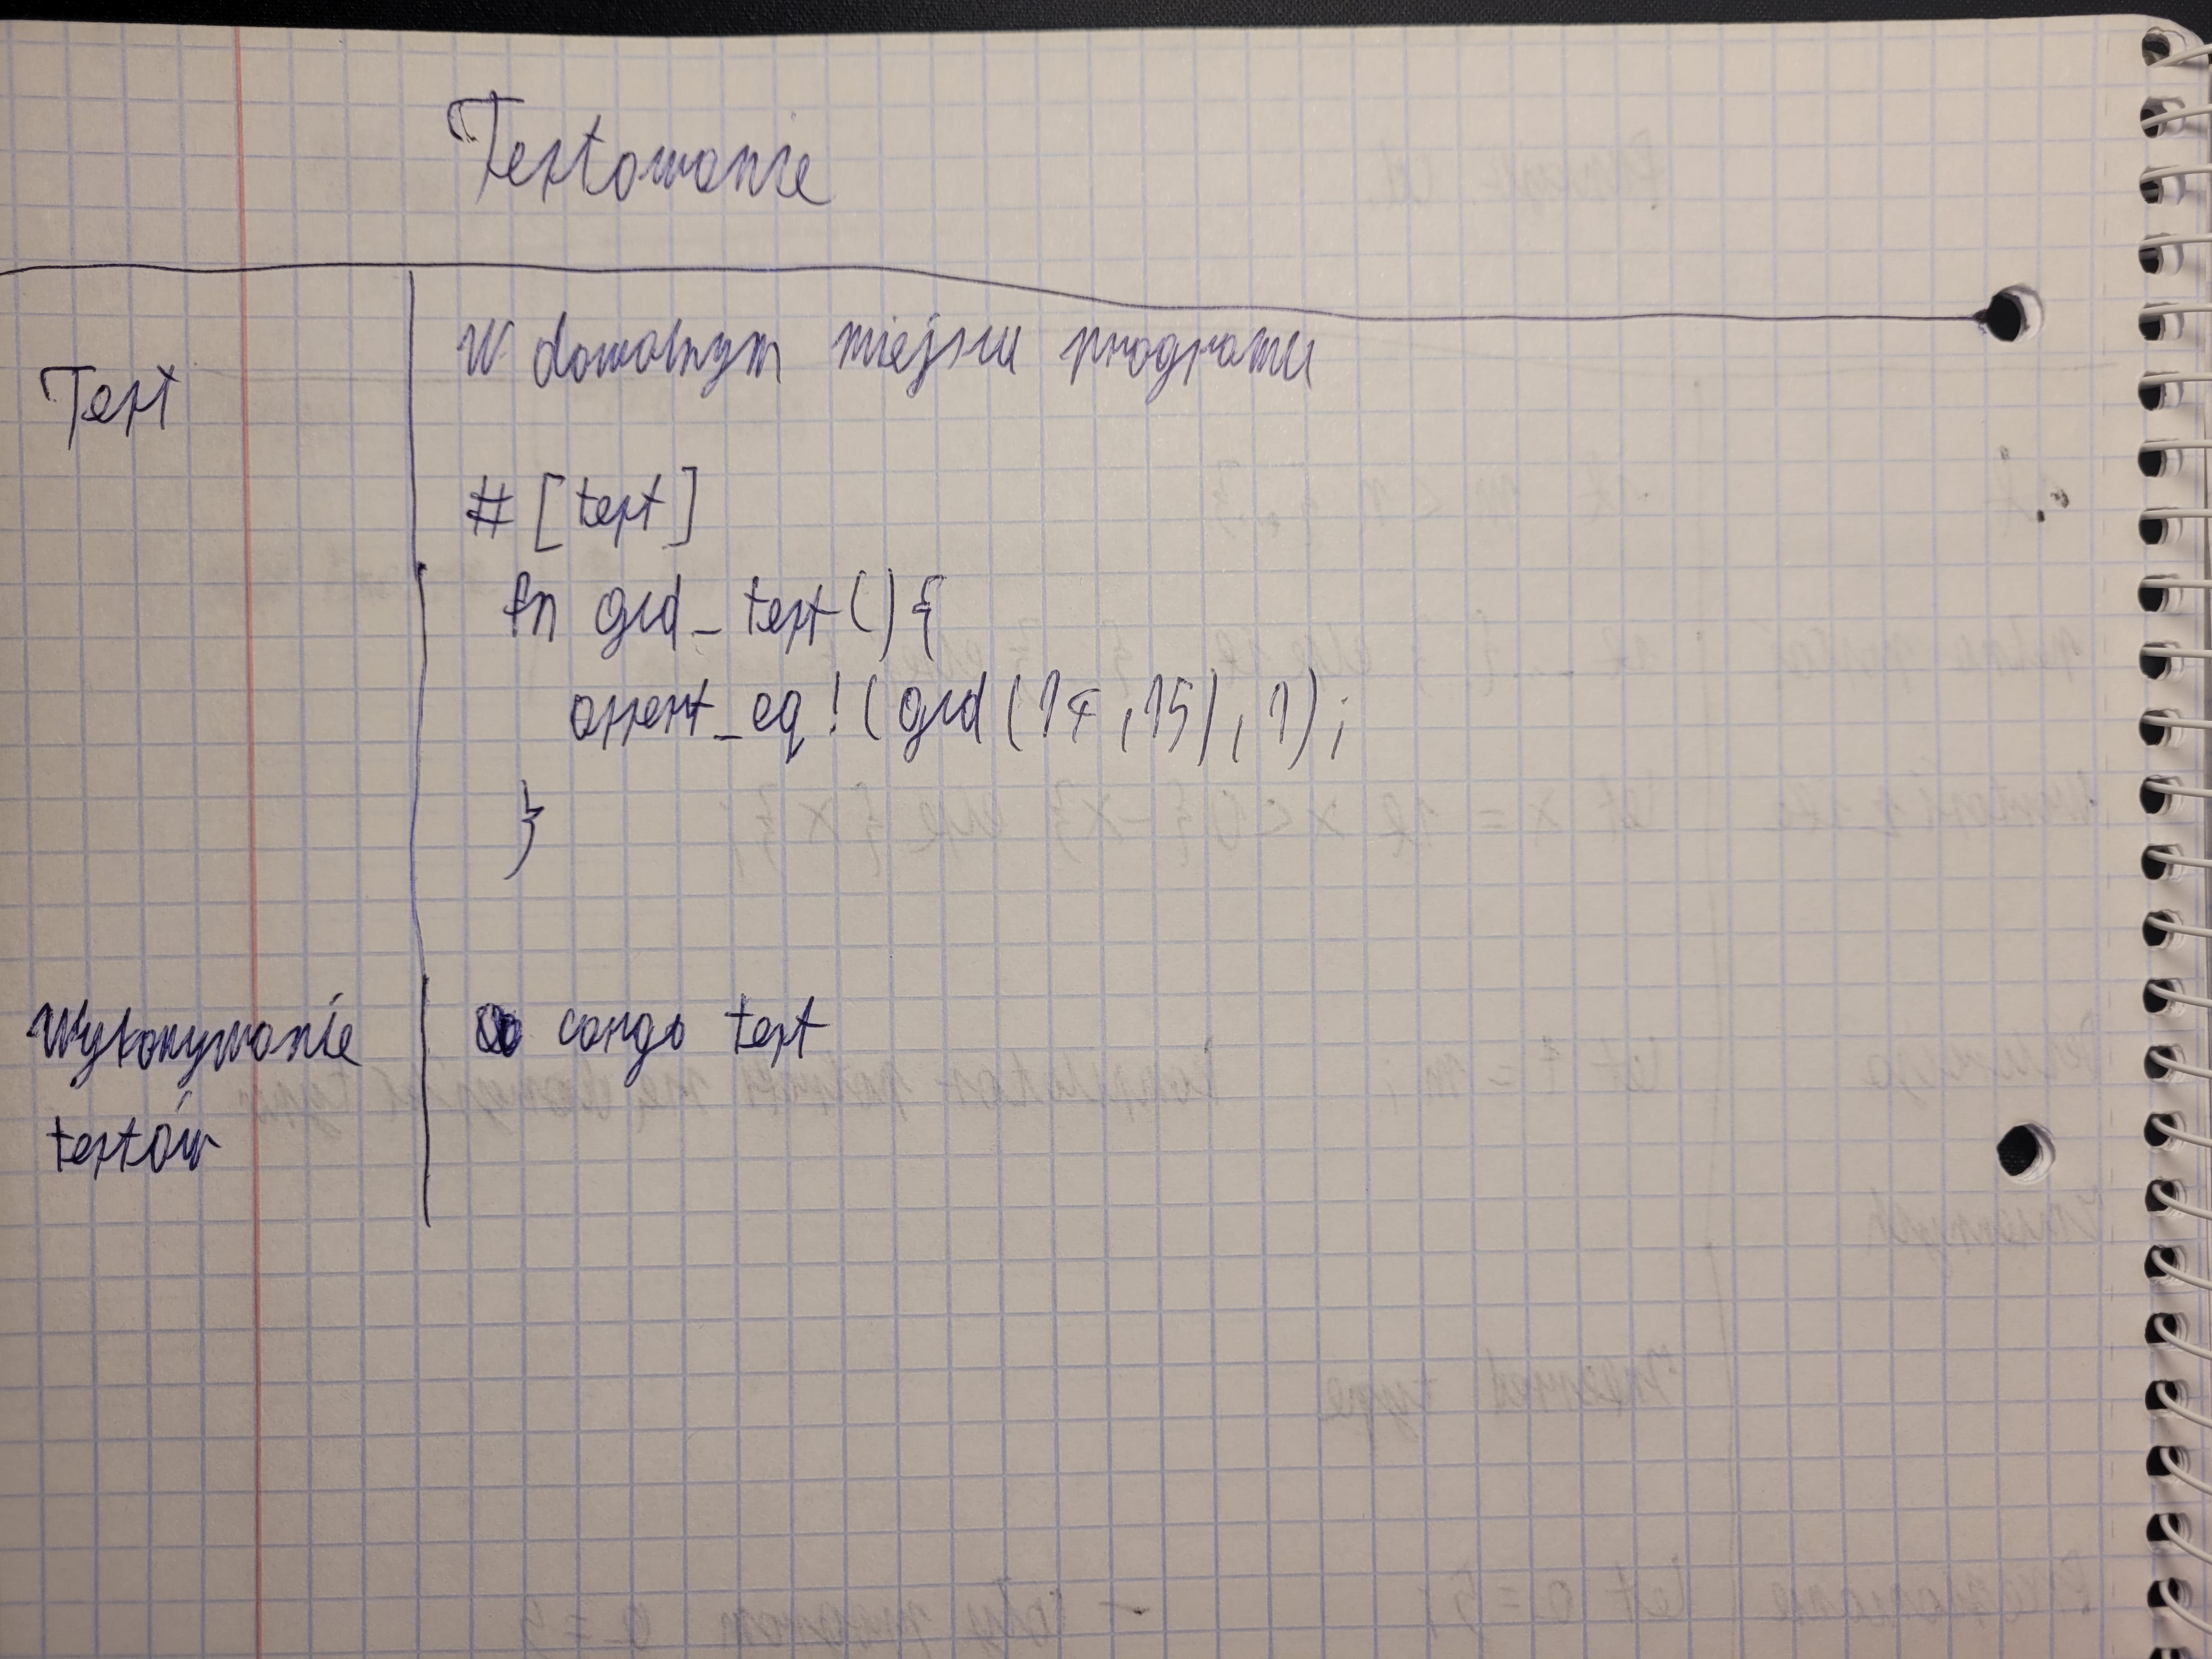 Testowanie
Test
W dowolnym miejscu programu
#[test]
fn gcd_test(){
assert_eq!(gcd(14,15),1);
}
Wykonywanie
testów
cargo test